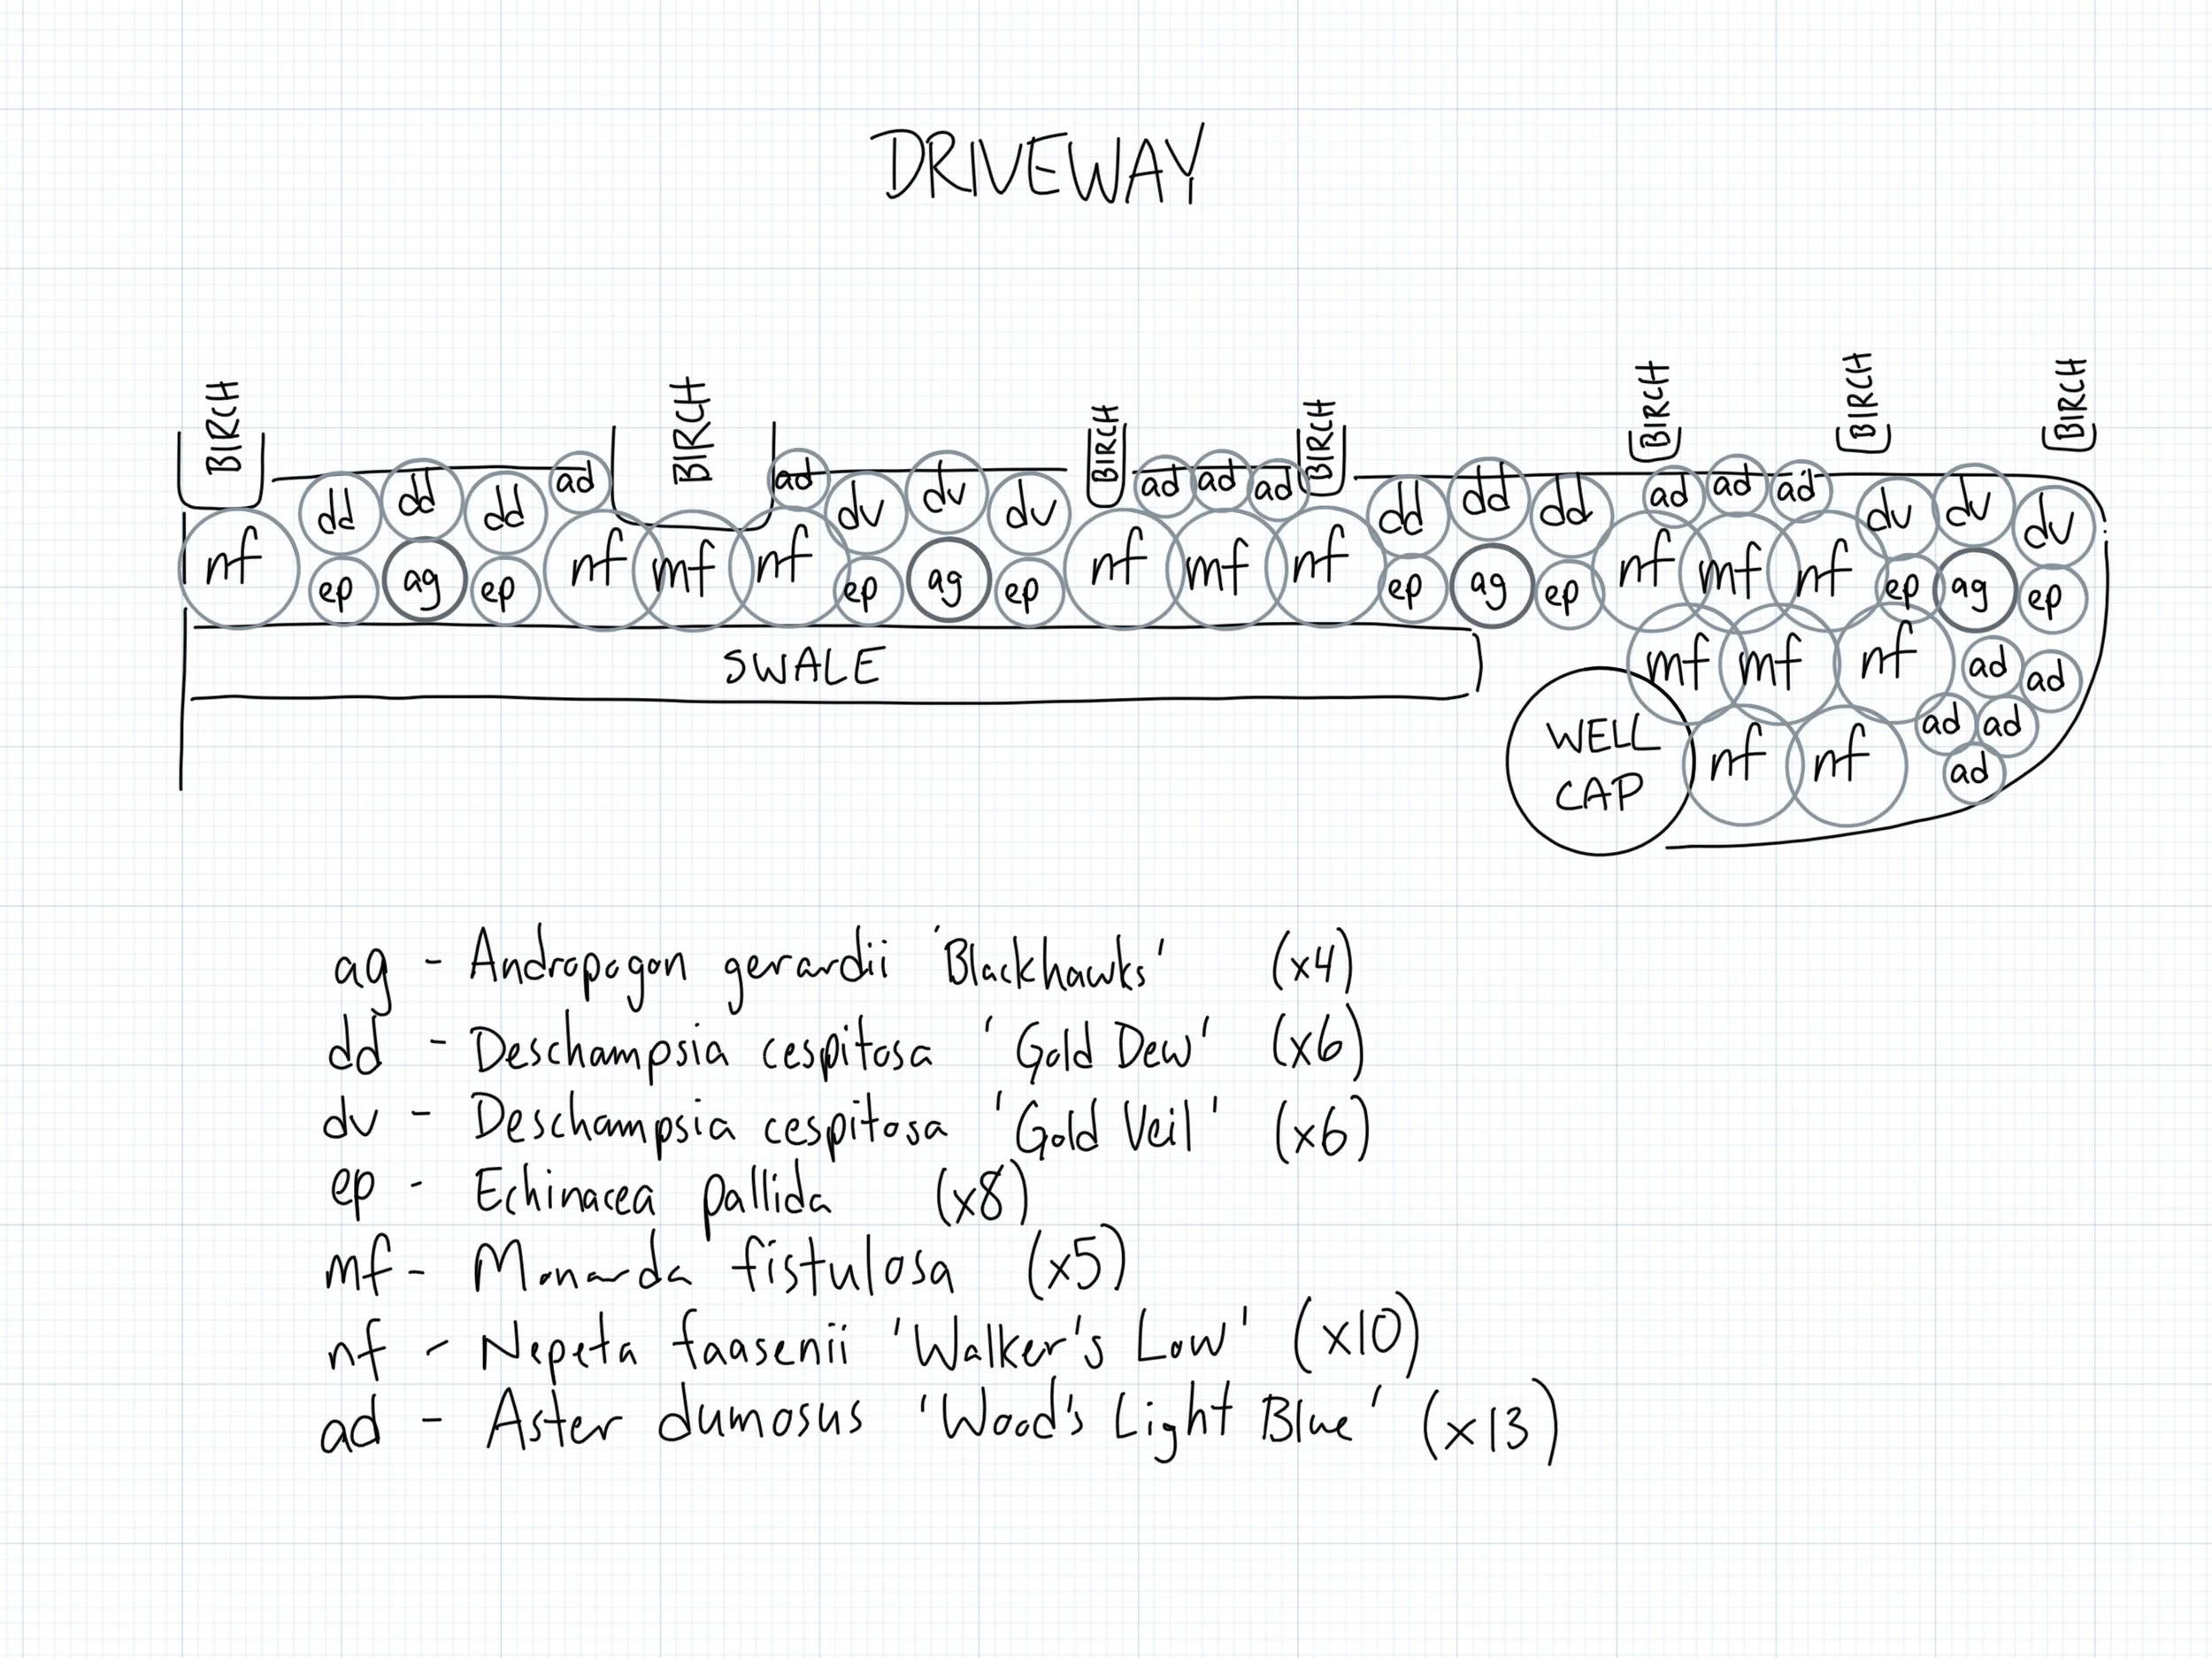 DRIVEWAY
BIRCH BIRCH BIRCH BIRCH BIRCH BIRCH BIRCH
dd dd dd ad ad dv dv dv ad ad ad dd dd dd ad ad ad dv dv dv
nf ep ag ep nf mf nf ep ag ep nf mf nf ep ag ep nf mf nf ep ag ep
SWALE
mf mf nf ad ad
WELL
CAP
nf nf ad ad
ad
ag - Andropogon gerardii 'Blackhawks' (x4)
dd - Deschampsia cespitosa 'Gold Dew' (x6)
dv - Deschampsia cespitosa 'Gold Veil' (x6)
ep - Echinacea pallida (x8)
mf - Monarda fistulosa (x5)
nf - Nepeta faasenii 'Walker's Low' (x10)
ad - Aster dumosus 'Wood's Light Blue' (x13)